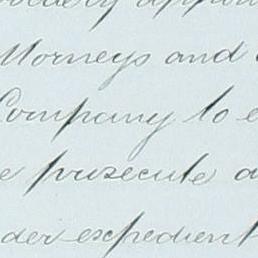 by appoin
Attorneys and
Company to e
e prosecute a
der expedient